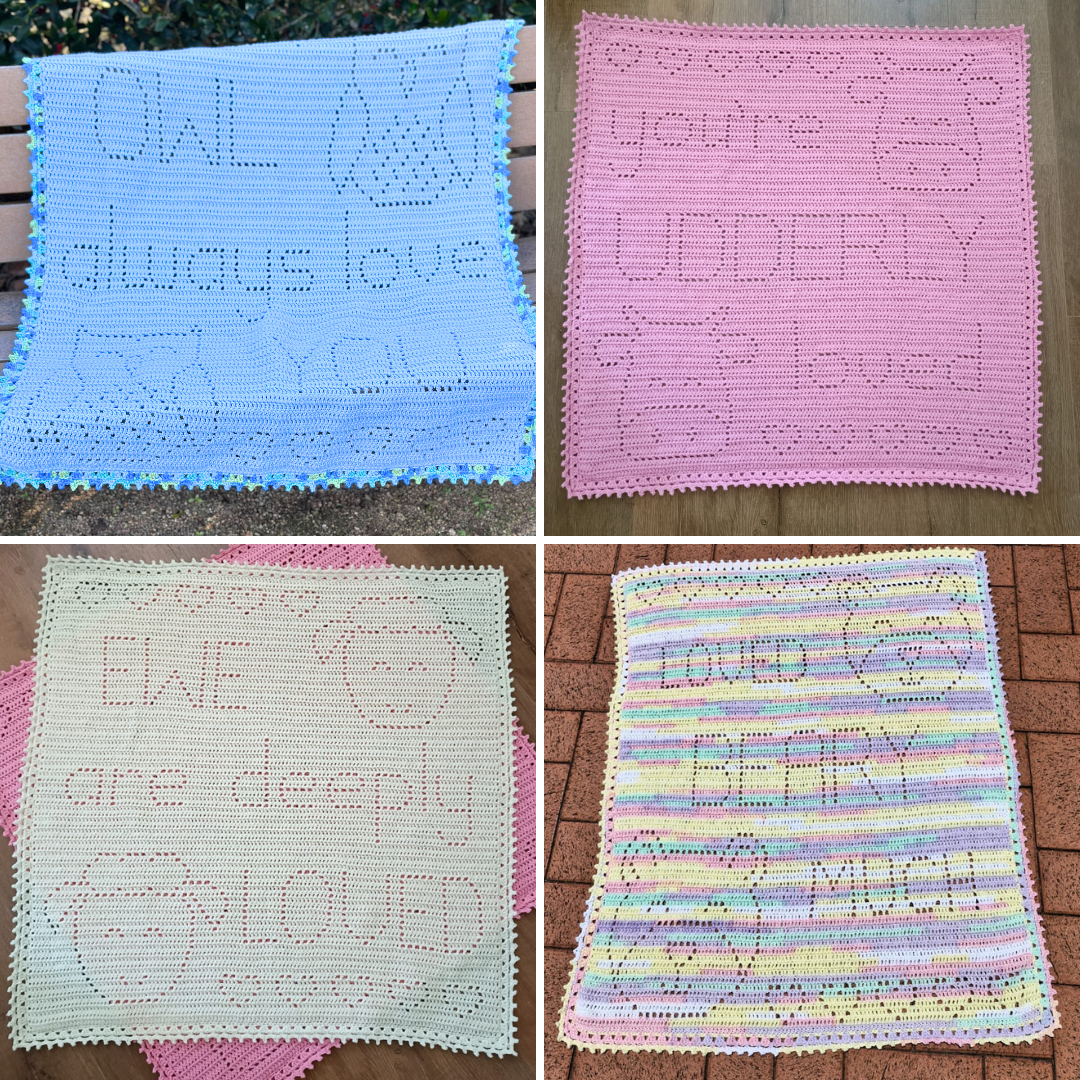 OWL
always love
YOU
you're
UDDERLY
loved
EWE
are deeply
LOVED
LOVED
BEARY
MUCH